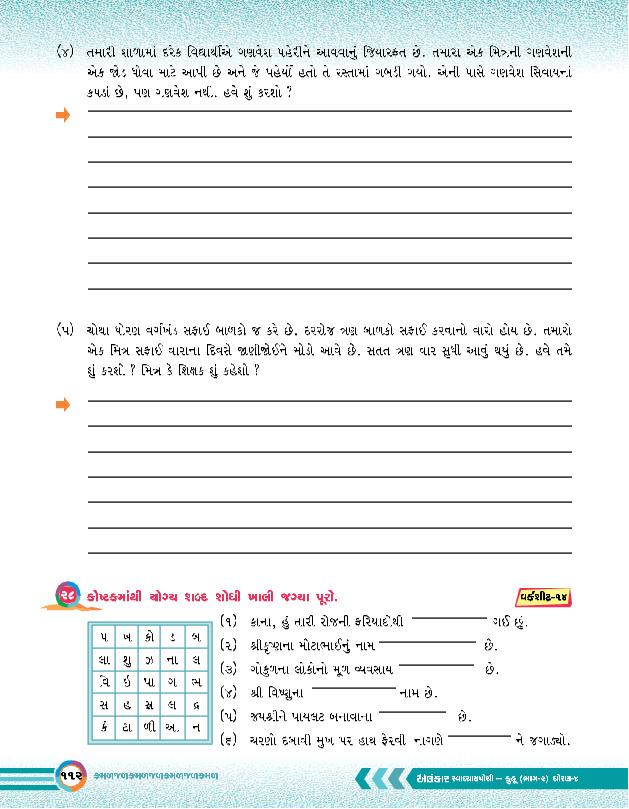 (૪) તમારી શાળામાં દરેક વિદ્યાર્થીએ ગણવેશ પહેરીને આવવાનું ફિયાદક્ત છે. તમારા એક મિત્રની ગણવેશની
એક જોડ ધોવા માટે આપી છે અને જે પહેર્યો હતો તે રસ્તામાં બગડી ગયો. એની પાસે ગણવેશ સિવાયનાં
કપડાં છે, પણ ગણવેશ નથી.. હવે શું કરશો ?
(૫) ચોથા ધોરણ વર્ગખંડ સફાઈ બાળકો જ કરે છે. દરરોજ ત્રણ બાળકો સફાઈ કરવાનો વારો હોય છે. તમારો
એક મિત્ર સફાઈ વારાના દિવસે જાણીજોઈને મોડો આવે છે. સતત ત્રણ વાર સુધી આવું થયું છે. હવે તમે
શું કરશો ? મિત્ર કે શિક્ષક શું કહેશો ?
૨૮ કોષ્ટકમાંથી યોગ્ય શબ્દ શોધી ખાલી જગ્યા પૂરો. વર્કશીટ-૧૪
પ ખ કો ડ બ
શુ ઝ ના લ
વિ ઇ પા ગ ભ
સ હ સ્ર લ દ્ર
કં ટા ળી આ. ન
(૧) કાના, હું તારી રોજની ફરિયાદોથી ગઈ છું.
(૨) શ્રીકૃષ્ણના મોટાભાઈનું નામ છે.
(૩) ગોકુળના લોકોનો મૂળ વ્યવસાય છે.
(૪) શ્રી વિષ્ણુના નામ છે.
(૫) જયશ્રીને પાયલટ બનાવાના છે.
(૬) ચરણો દબાવી મુખ પર હાથ ફેરવી નાગણે ને જગાડ્યો.
૧૧૨ કમળજળકમળજળકમળજળકમળ અલંકાર સ્વાધ્યાયપોથી – કુહૂ (ભાગ-૨) ધોરણ-૪